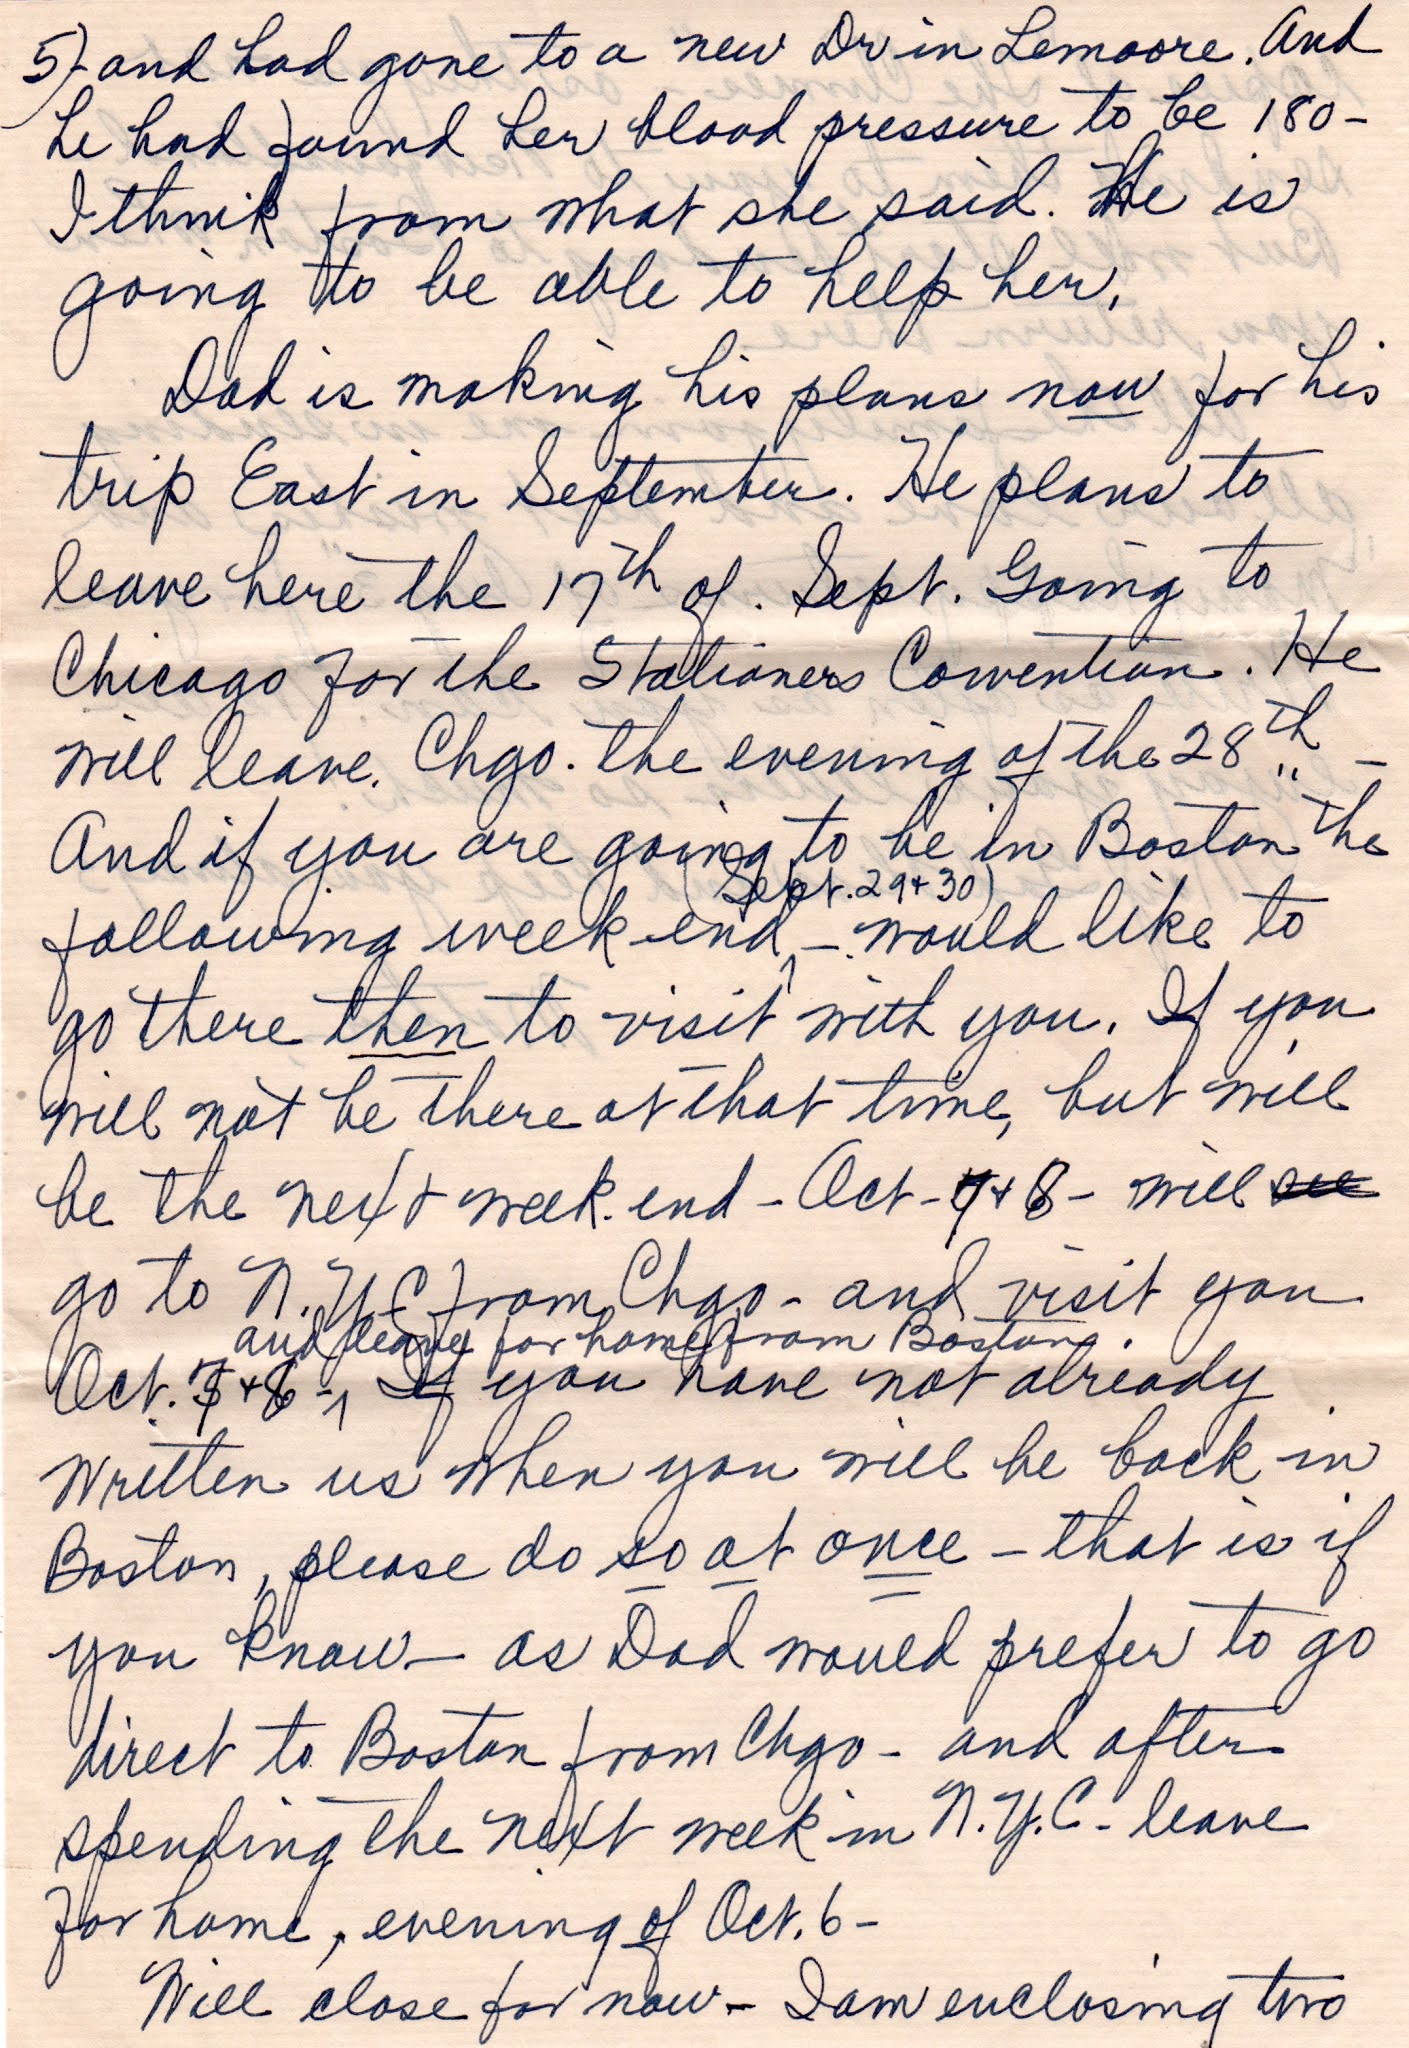 5) - and had gone to a new Dr in Lemoore. And
he had found her blood pressure to be 180 -
I think from what she said. He is
going to be able to help her.
Dad is making his plans now for his
trip East in September. He plans to
leave here the 17th of. Sept. Going to
Chicago for the Stationers Convention. He
will leave. Chgo. the evening of the 28th -
And if you are going to be in Boston the
(Sept. 29 + 30)
following week end, - would like to
go there then to visit with you. If you
will not be there at that time, but will
be the next week. end - Oct - 7 + 8 - will see
go to N.Y.C from Chgo - and visit you
and leave for home from Boston.
Oct. 7 + 8 - If you have not already
written us when you will be back in
Boston, please do so at once - that is if
you know - as Dad would prefer to go
direct to Boston from Chgo - and after
spending the next week in N.Y.C - leave
for home, evening of Oct. 6 -
Will close for now - I am enclosing two